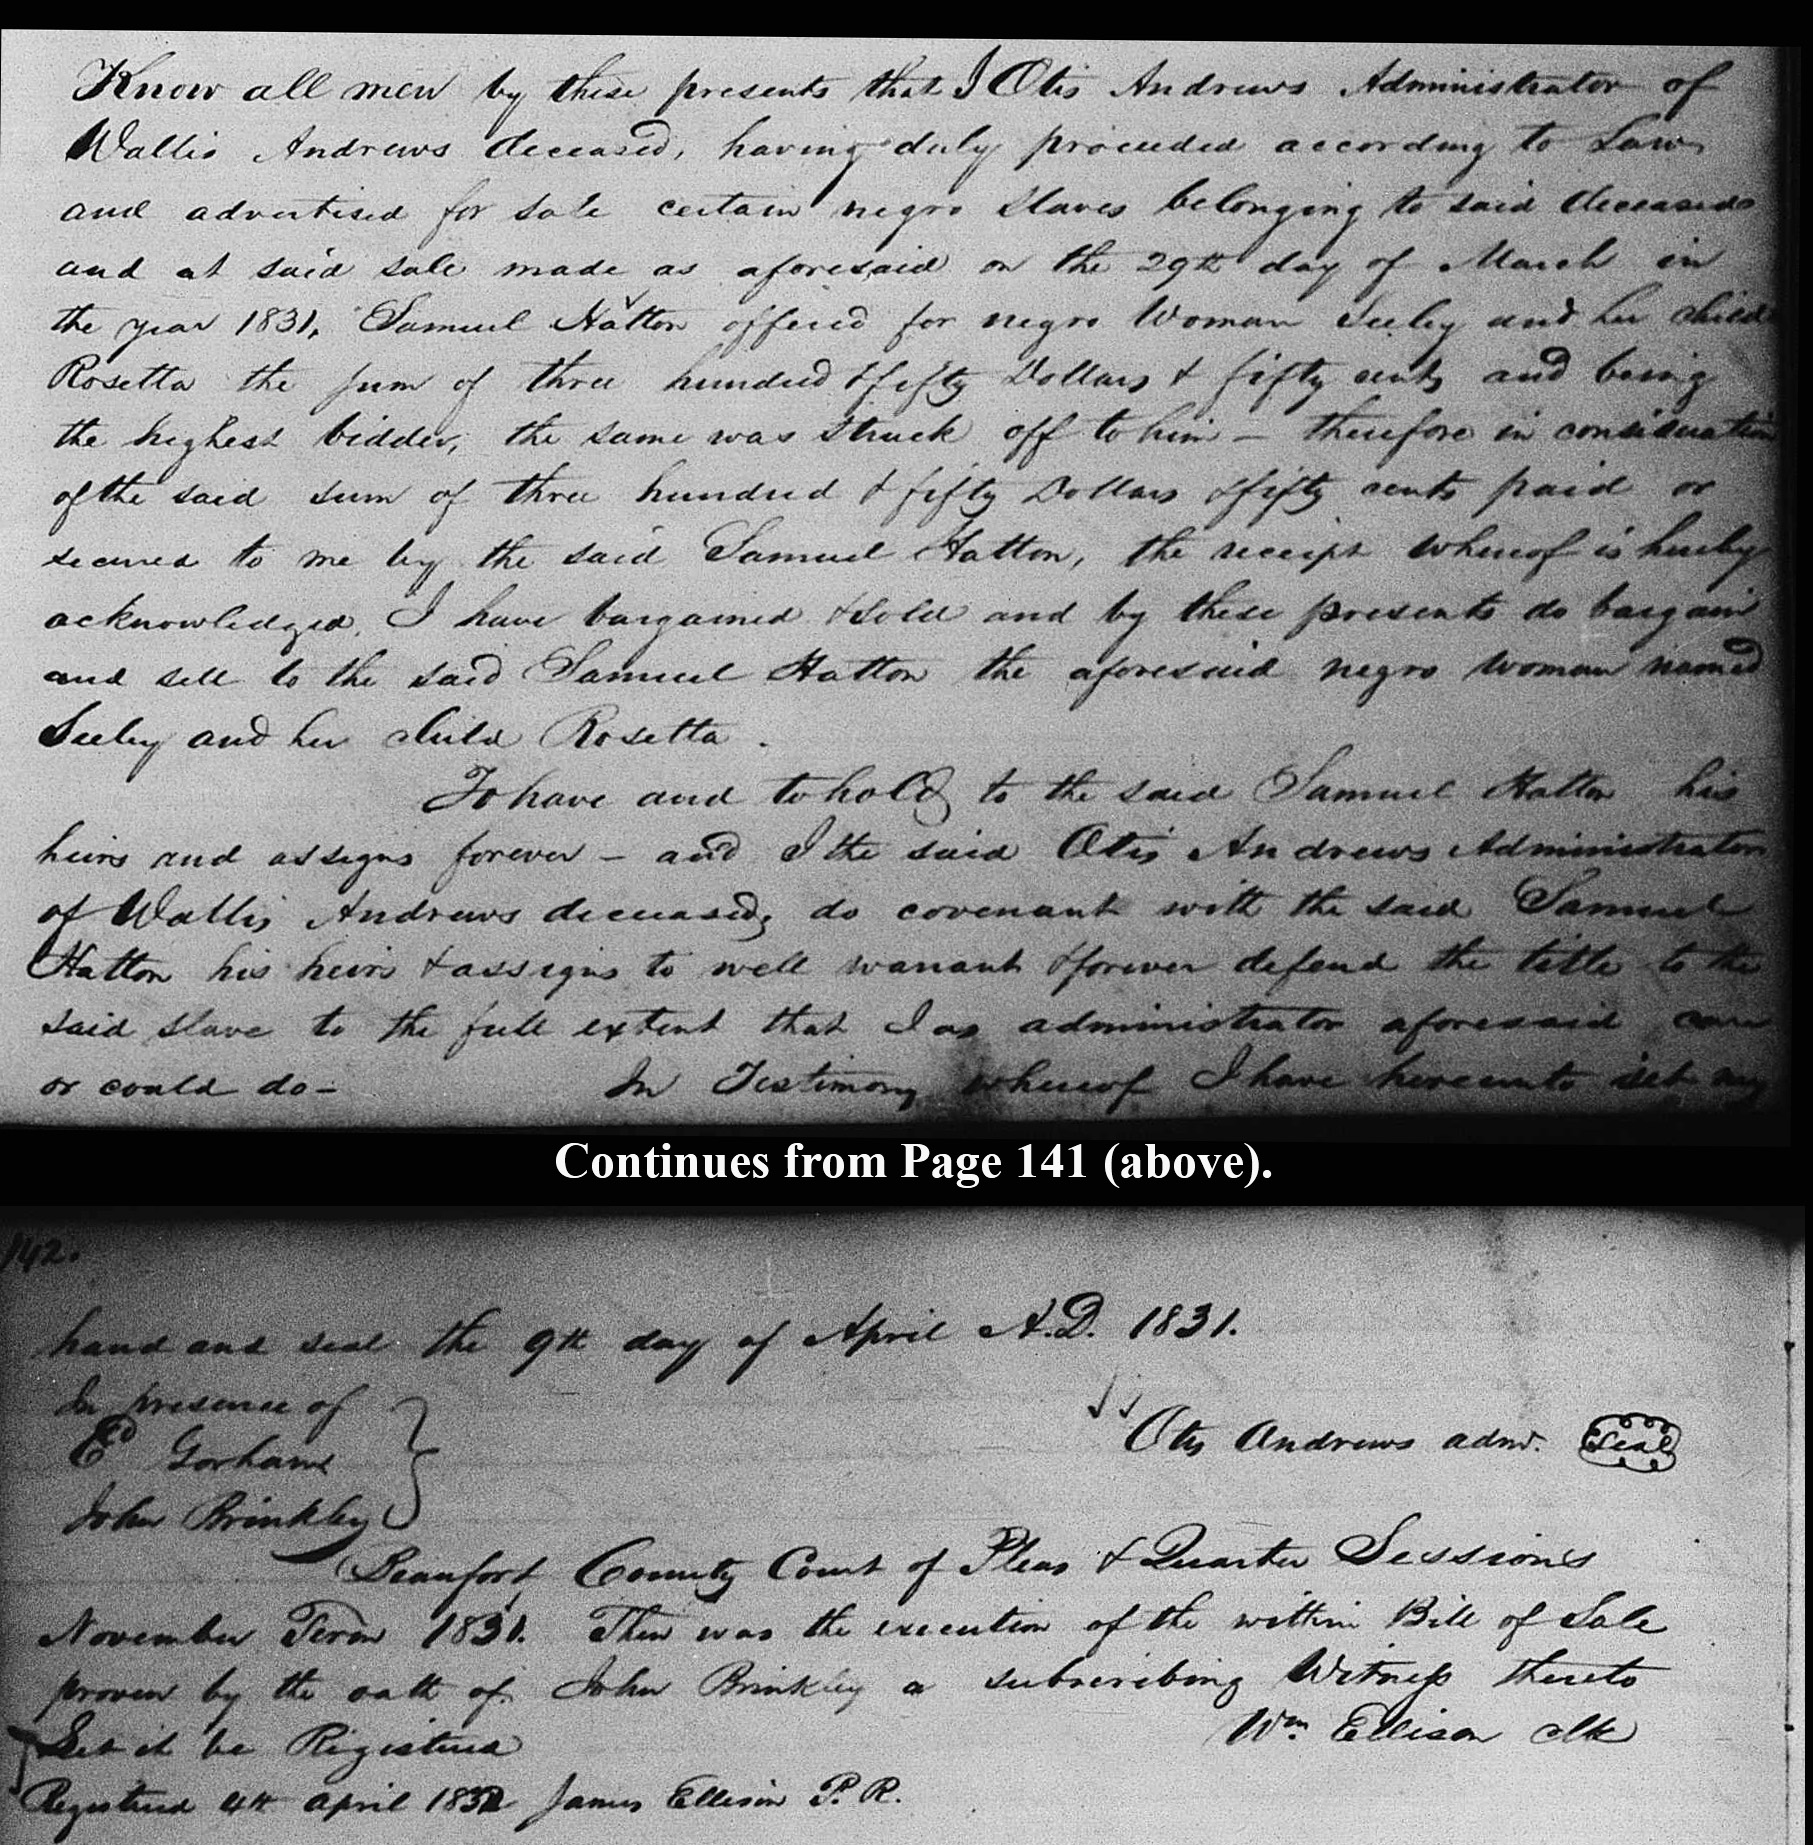 Know all men by these presents that I Otis Andrews Administrator of
Wallis Andrews deceased, having duly proceeded according to Law,
and advertised for sale certain negro slaves belonging to said deceased
and at said sale made as aforesaid on the 29th day of March in
the year 1831, Samuel Hatton offered for negro Woman Seeley and her child
Rosetta the sum of three hundred & fifty Dollars & fifty cents and being
the highest bidder, the same was struck off to him – therefore in consideration
of the said sum of three hundred & fifty Dollars & fifty cents paid or
secured to me by the said Samuel Hatton, the receipt whereof is hereby
acknowledged, I have bargained & sold and by these presents do bargain
and sell to the said Samuel Hatton the aforesaid negro woman named
Seeley and her child Rosetta.
To have and to hold to the said Samuel Hatton his
heirs and assigns forever – and I the said Otis Andrews Administrator
of Wallis Andrews deceased, do covenant with the said Samuel
Hatton his heirs & assigns to well warrant & forever defend the title to the
said slave to the full extent that I as administrator aforesaid can
or could do – In Testimony whereof I have hereunto set my
Continues from Page 141 (above).
142.
hand and seal the 9th day of April A.D. 1831.
In presence of
Ed Gorham
John Brinkley
Otis Andrews admr. Seal
Beaufort County Court of Pleas & Quarter Sessions
November Term 1831. Then was the execution of the within Bill of Sale
proven by the oath of John Brinkley a subscribing Witness thereto
Let it be Registered Wm Ellison clk
Registered 4th April 1832 James Ellison P. R.